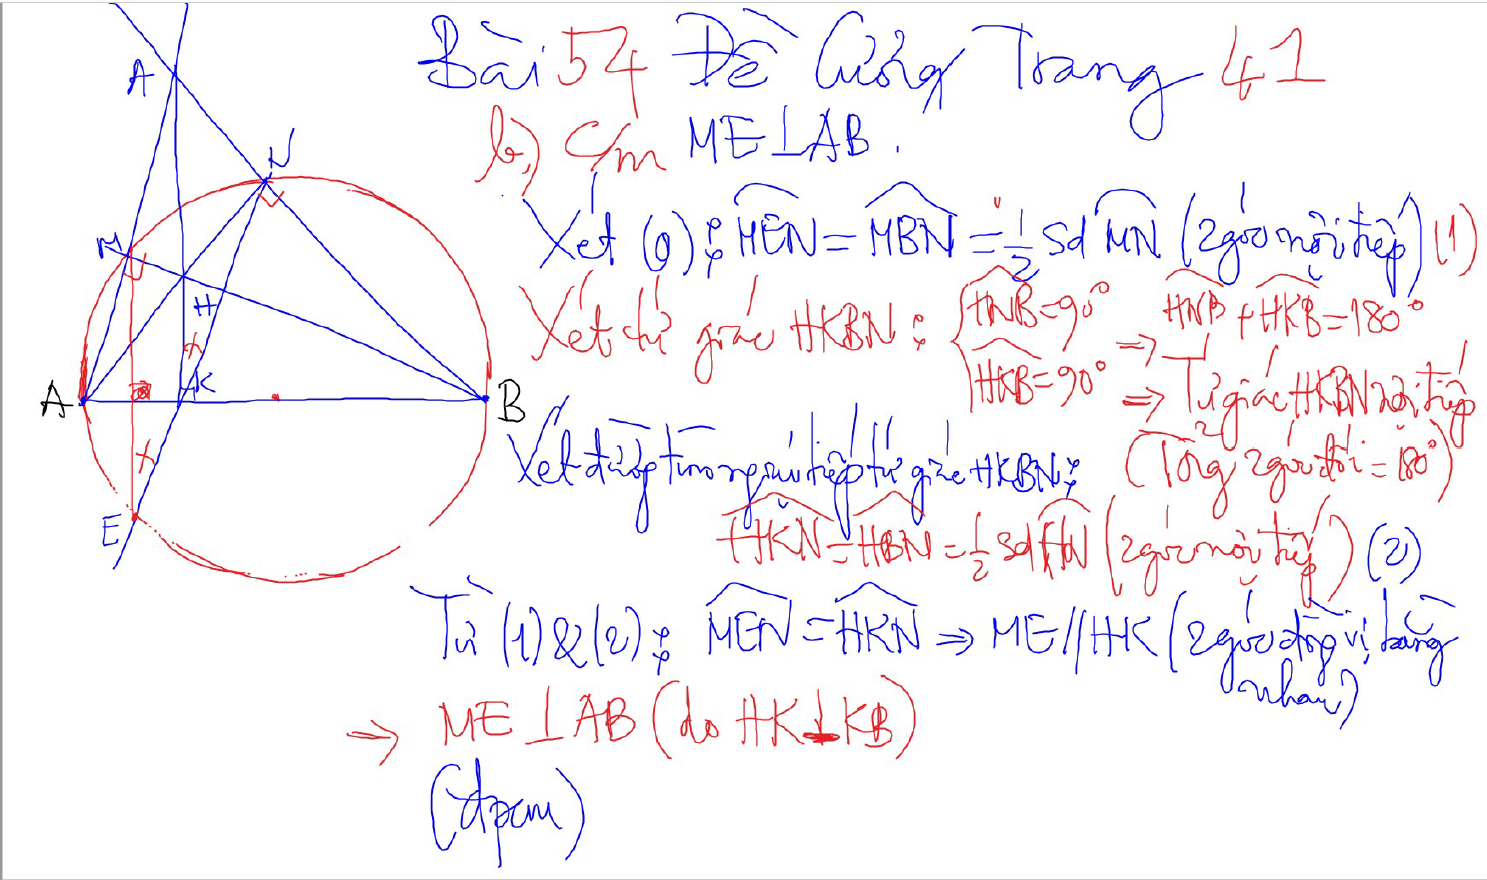 Bài 54 Đề Cương Trang 41
b) C/m ME ⊥ AB.
Xét (O): MEN = MBN = 1/2 Sđ MN (2 góc nội tiếp) (1)
Xét tứ giác HKBN: { HNB = 90° HKB = 90°
=> HNB + HKB = 180°
=> Tứ giác HKBN nội tiếp
(Tổng 2 góc đối = 180°)
Xét đường tròn ngoại tiếp tứ giác HKBN:
HKN = HBN = 1/2 Sđ HN (2 góc nội tiếp) (2)
Từ (1) & (2): MEN = HKN => ME // HK (2 góc đồng vị bằng
nhau)
=> ME ⊥ AB (do HK ⊥ KB)
(đpcm)
A
N
M
H
K
A
B
E